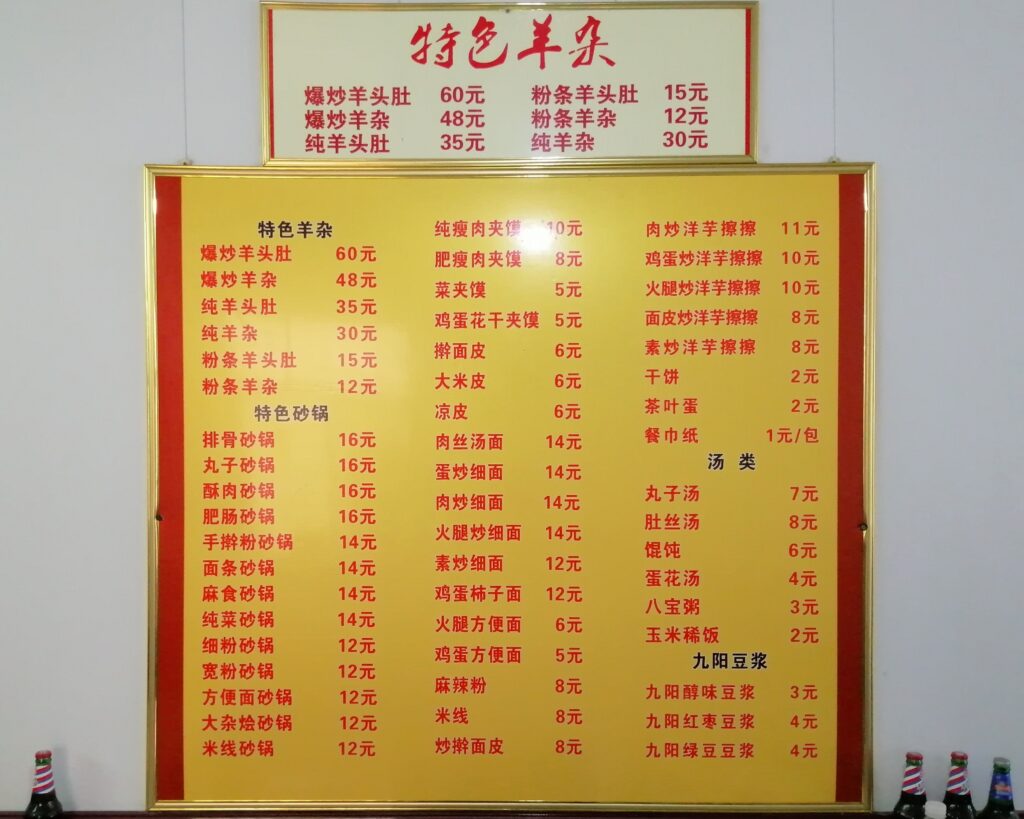 特色羊杂
爆炒羊头肚 60元 粉条羊头肚 15元
爆炒羊杂 48元 粉条羊杂 12元
纯羊头肚 35元 纯羊杂 30元
特色羊杂
爆炒羊头肚 60元
爆炒羊杂 48元
纯羊头肚 35元
纯羊杂 30元
粉条羊头肚 15元
粉条羊杂 12元
特色砂锅
排骨砂锅 16元
丸子砂锅 16元
酥肉砂锅 16元
肥肠砂锅 16元
手擀粉砂锅 14元
面条砂锅 14元
麻食砂锅 14元
纯菜砂锅 14元
细粉砂锅 12元
宽粉砂锅 12元
方便面砂锅 12元
大杂烩砂锅 12元
米线砂锅 12元
纯瘦肉夹馍 10元
肥瘦肉夹馍 8元
菜夹馍 5元
鸡蛋花干夹馍 5元
擀面皮 6元
大米皮 6元
凉皮 6元
肉丝汤面 14元
蛋炒细面 14元
肉炒细面 14元
火腿炒细面 14元
素炒细面 12元
鸡蛋柿子面 12元
火腿方便面 6元
鸡蛋方便面 5元
麻辣粉 8元
米线 8元
炒擀面皮 8元
肉炒洋芋擦擦 11元
鸡蛋炒洋芋擦擦 10元
火腿炒洋芋擦擦 10元
面皮炒洋芋擦擦 8元
素炒洋芋擦擦 8元
干饼 2元
茶叶蛋 2元
餐巾纸 1元/包
汤 类
丸子汤 7元
肚丝汤 8元
馄饨 6元
蛋花汤 4元
八宝粥 3元
玉米稀饭 2元
九阳豆浆
九阳醇味豆浆 3元
九阳红枣豆浆 4元
九阳绿豆豆浆 4元